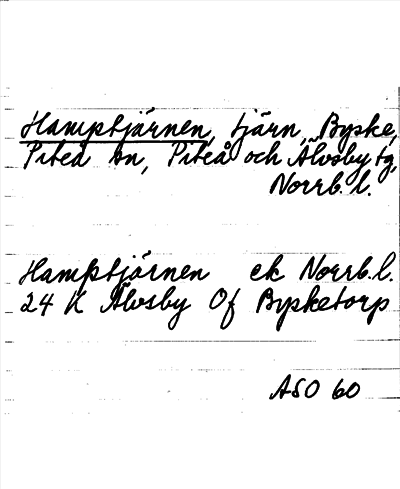 Hamptjärnen, tjärn, Byske,
Piteå sn, Piteå och Älvsby tg,
Norrb. l.
Hamptjärnen ek Norrb. l.
24 K Älvsby Of Bysketorp
ASO 60